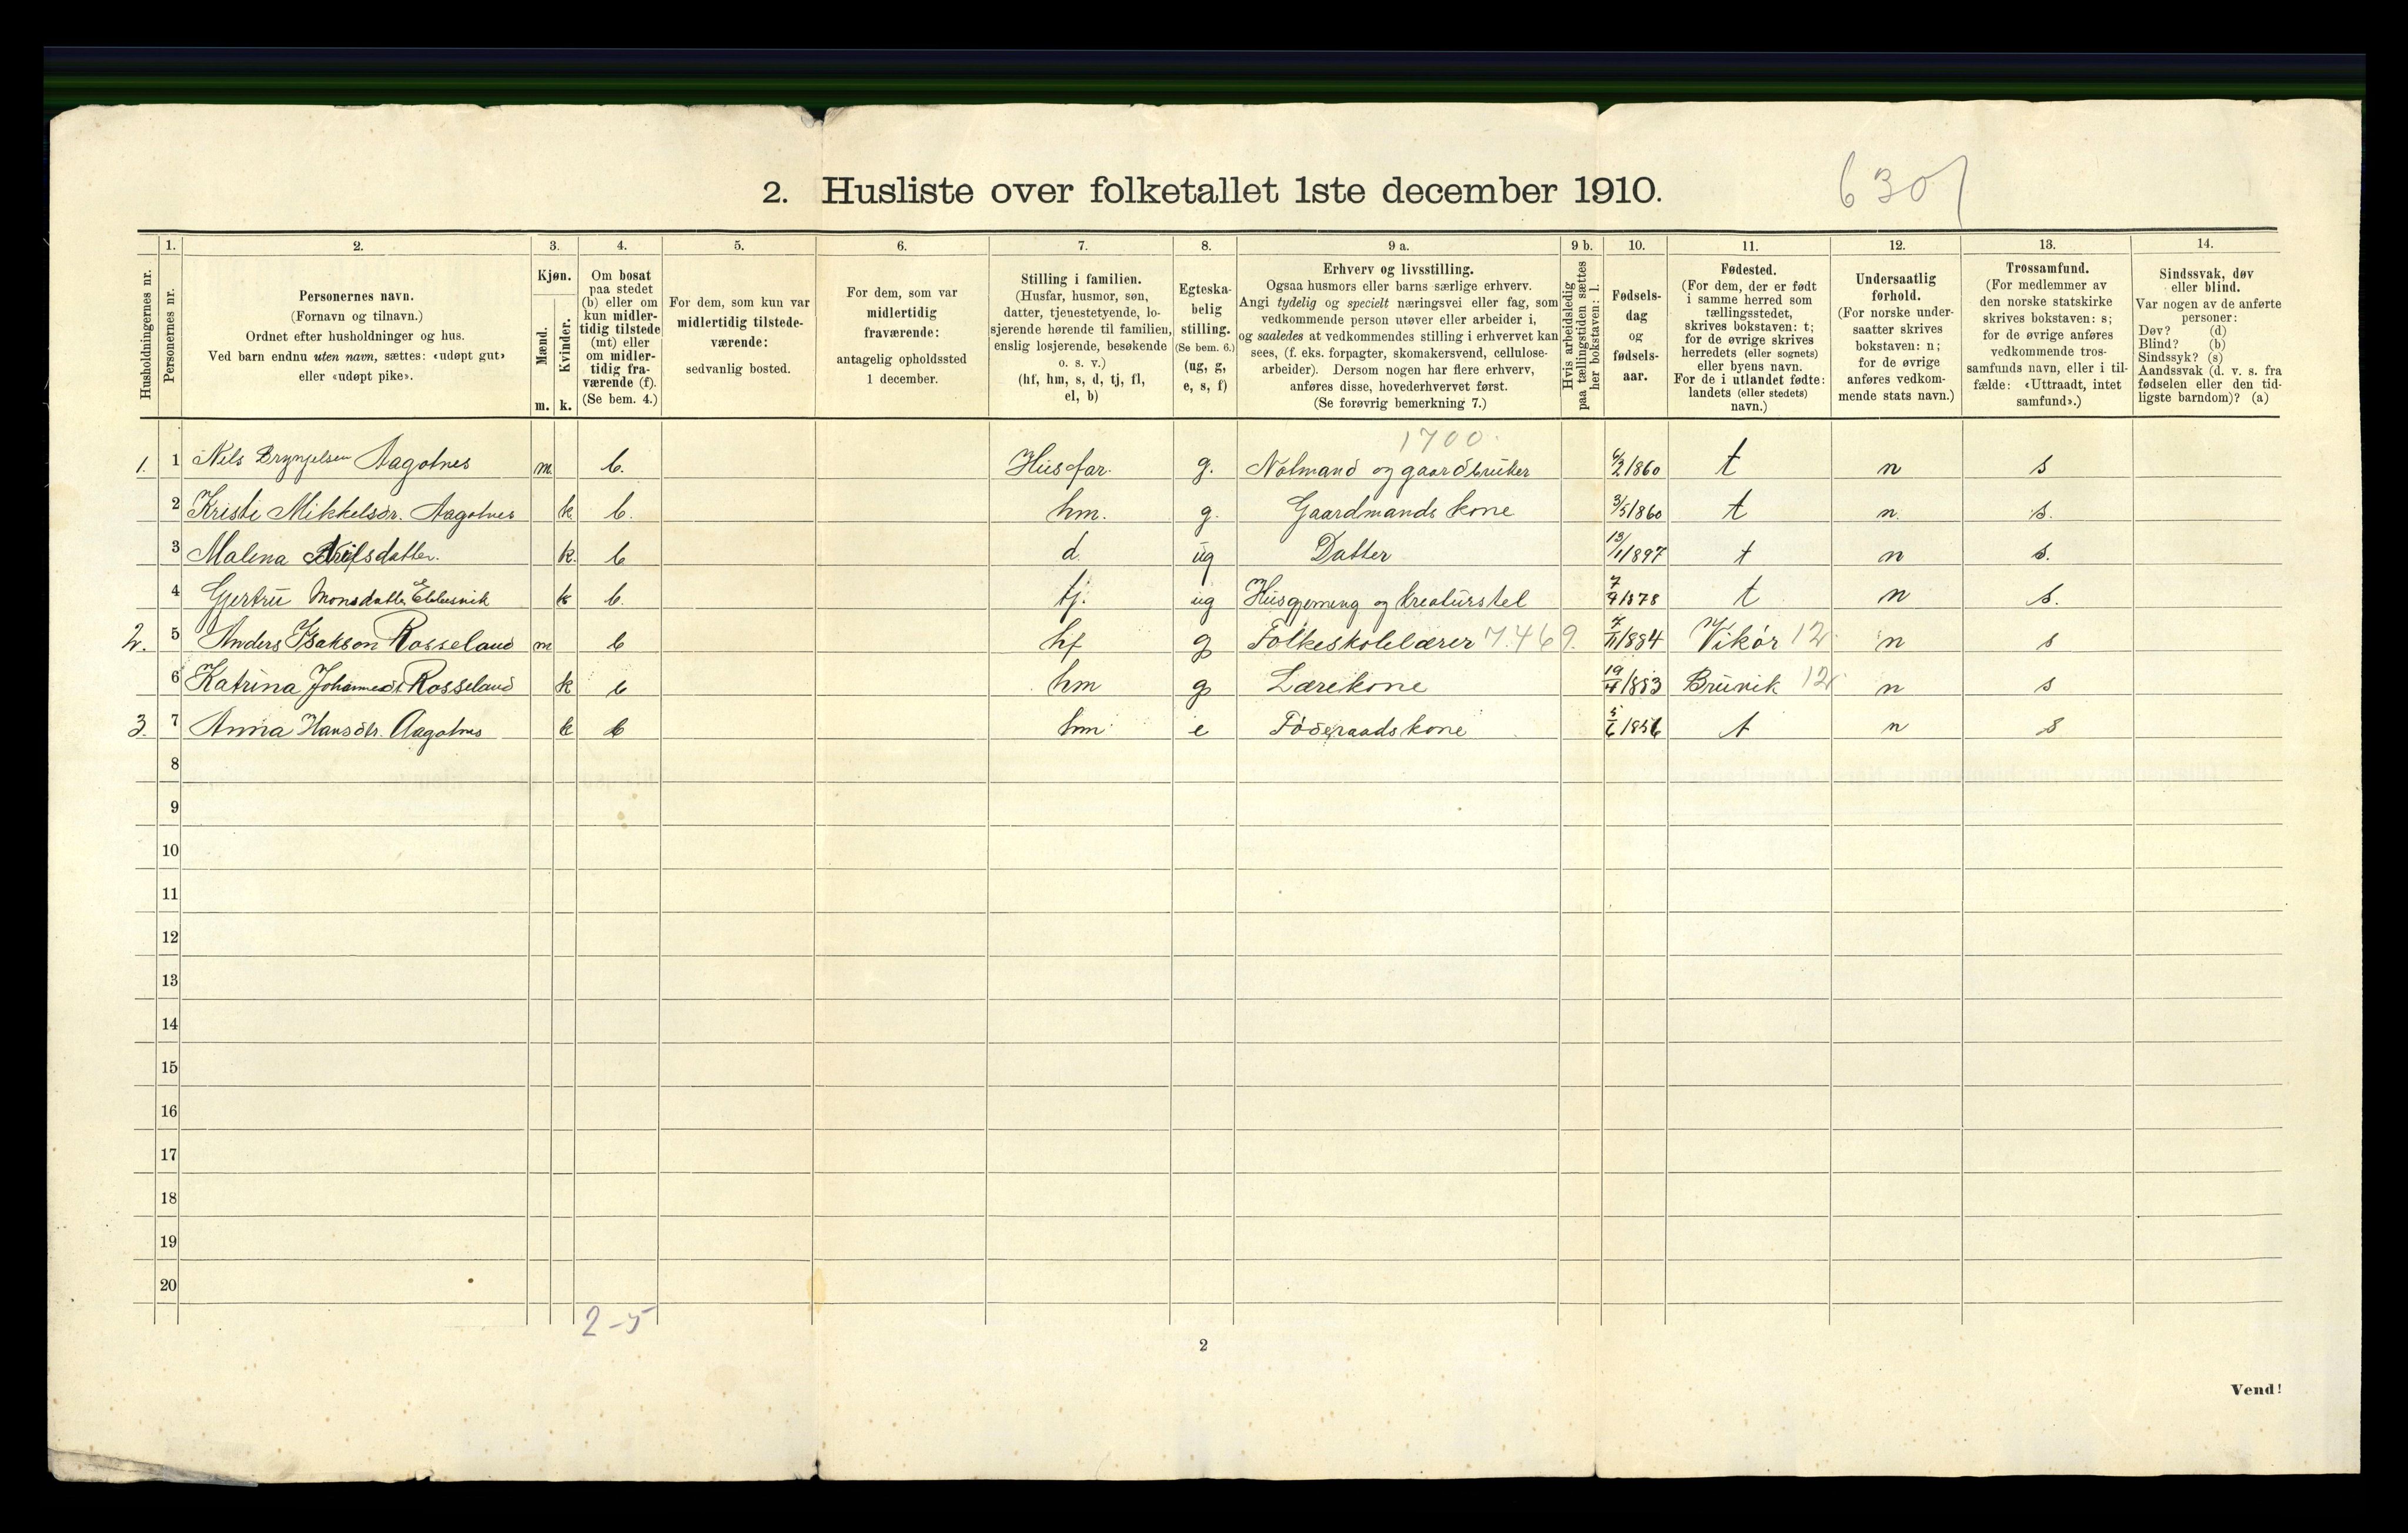 6301
2. Husliste over folketallet 1ste december 1910.
Husholdningernes nr.
1. Personernes nr.
2. Personernes navn. (Fornavn og tilnavn.) Ordnet efter husholdninger og hus. Ved barn endnu uten navn, sættes: «udøpt gut» eller «udøpt pike».
3. Kjøn. Mænd. m. Kvinder. k.
4. Om bosat paa stedet (b) eller om kun midlertidig tilstede (mt) eller om midlertidig fraværende (f). (Se bem. 4.)
5. For dem, som kun var midlertidig tilstedeværende: sedvanlig bosted.
6. For dem, som var midlertidig fraværende: antagelig opholdssted 1 december.
7. Stilling i familien. (Husfar, husmor, søn, datter, tjenestetyende, losjerende hørende til familien, enslig losjerende, besøkende o. s. v.) (hf, hm, s, d, tj, fl, el, b)
8. Egteskabelig stilling. (Se bem. 6.) (ug, g, e, s, f)
9 a. Erhverv og livsstilling. Ogsaa husmors eller barns særlige erhverv. Angi tydelig og specielt næringsvei eller fag, som vedkommende person utøver eller arbeider i, og saaledes at vedkommendes stilling i erhvervet kan sees, (f. eks. forpagter, skomakersvend, cellulosearbeider). Dersom nogen har flere erhverv, anføres disse, hovederhvervet først. (Se forøvrig bemerkning 7.)
9 b. Hvis arbeidsledig paa tællingstiden sættes her bokstaven: l.
10. Fødselsdag og fødselsaar.
11. Fødested. (For dem, der er født i samme herred som tællingsstedet, skrives bokstaven: t; for de øvrige skrives herredets (eller sognets) eller byens navn. For de i utlandet fødte: landets (eller stedets) navn.)
12. Undersaatlig forhold. (For norske undersaatter skrives bokstaven: n; for de øvrige anføres vedkommende stats navn.)
13. Trossamfund. (For medlemmer av den norske statskirke skrives bokstaven: s; for de øvrige anføres vedkommende trossamfunds navn, eller i tilfælde: «Uttraadt, intet samfund».)
14. Sindssvak, døv eller blind. Var nogen av de anførte personer: Døv? (d) Blind? (b) Sindssyk? (s) Aandssvak (d. v. s. fra fødselen eller den tidligste barndom)? (a)
1700
1. 1 Nils Brynjelsen Aagotnes m. b. Husfar. g. Notmand og gaardbruker 6/2 1860 t n s
2 Kristi Mikkelsdr. Aagotnes k. b. hm. g. Gaardmands kone 3/5 1860 t n. s.
3 Malena Nilsdatter. k. b d. ug Datter 13/1 1897 t n s.
4 Gjertru Monsdatter Ebbesvik k b. tj. ug Husgjerning og kreaturstel 7/9 1878 t n s.
2. 5 Anders Isakson Rosseland m b hf g Folkeskolelærer 7.469. 7/11 1884 Vikør 12. n s
6 Katrina Johannesdt. Rosseland k b hm g Lærekone 19/4 1883 Bruvik 12. n s
3. 7 Anna Hansdtr. Aagotnes k b hm e Føderaadskone 5/6 1856 t n s
8
9
10
11
12
13
14
15
16
17
18
19
20
2-5
2
Vend!